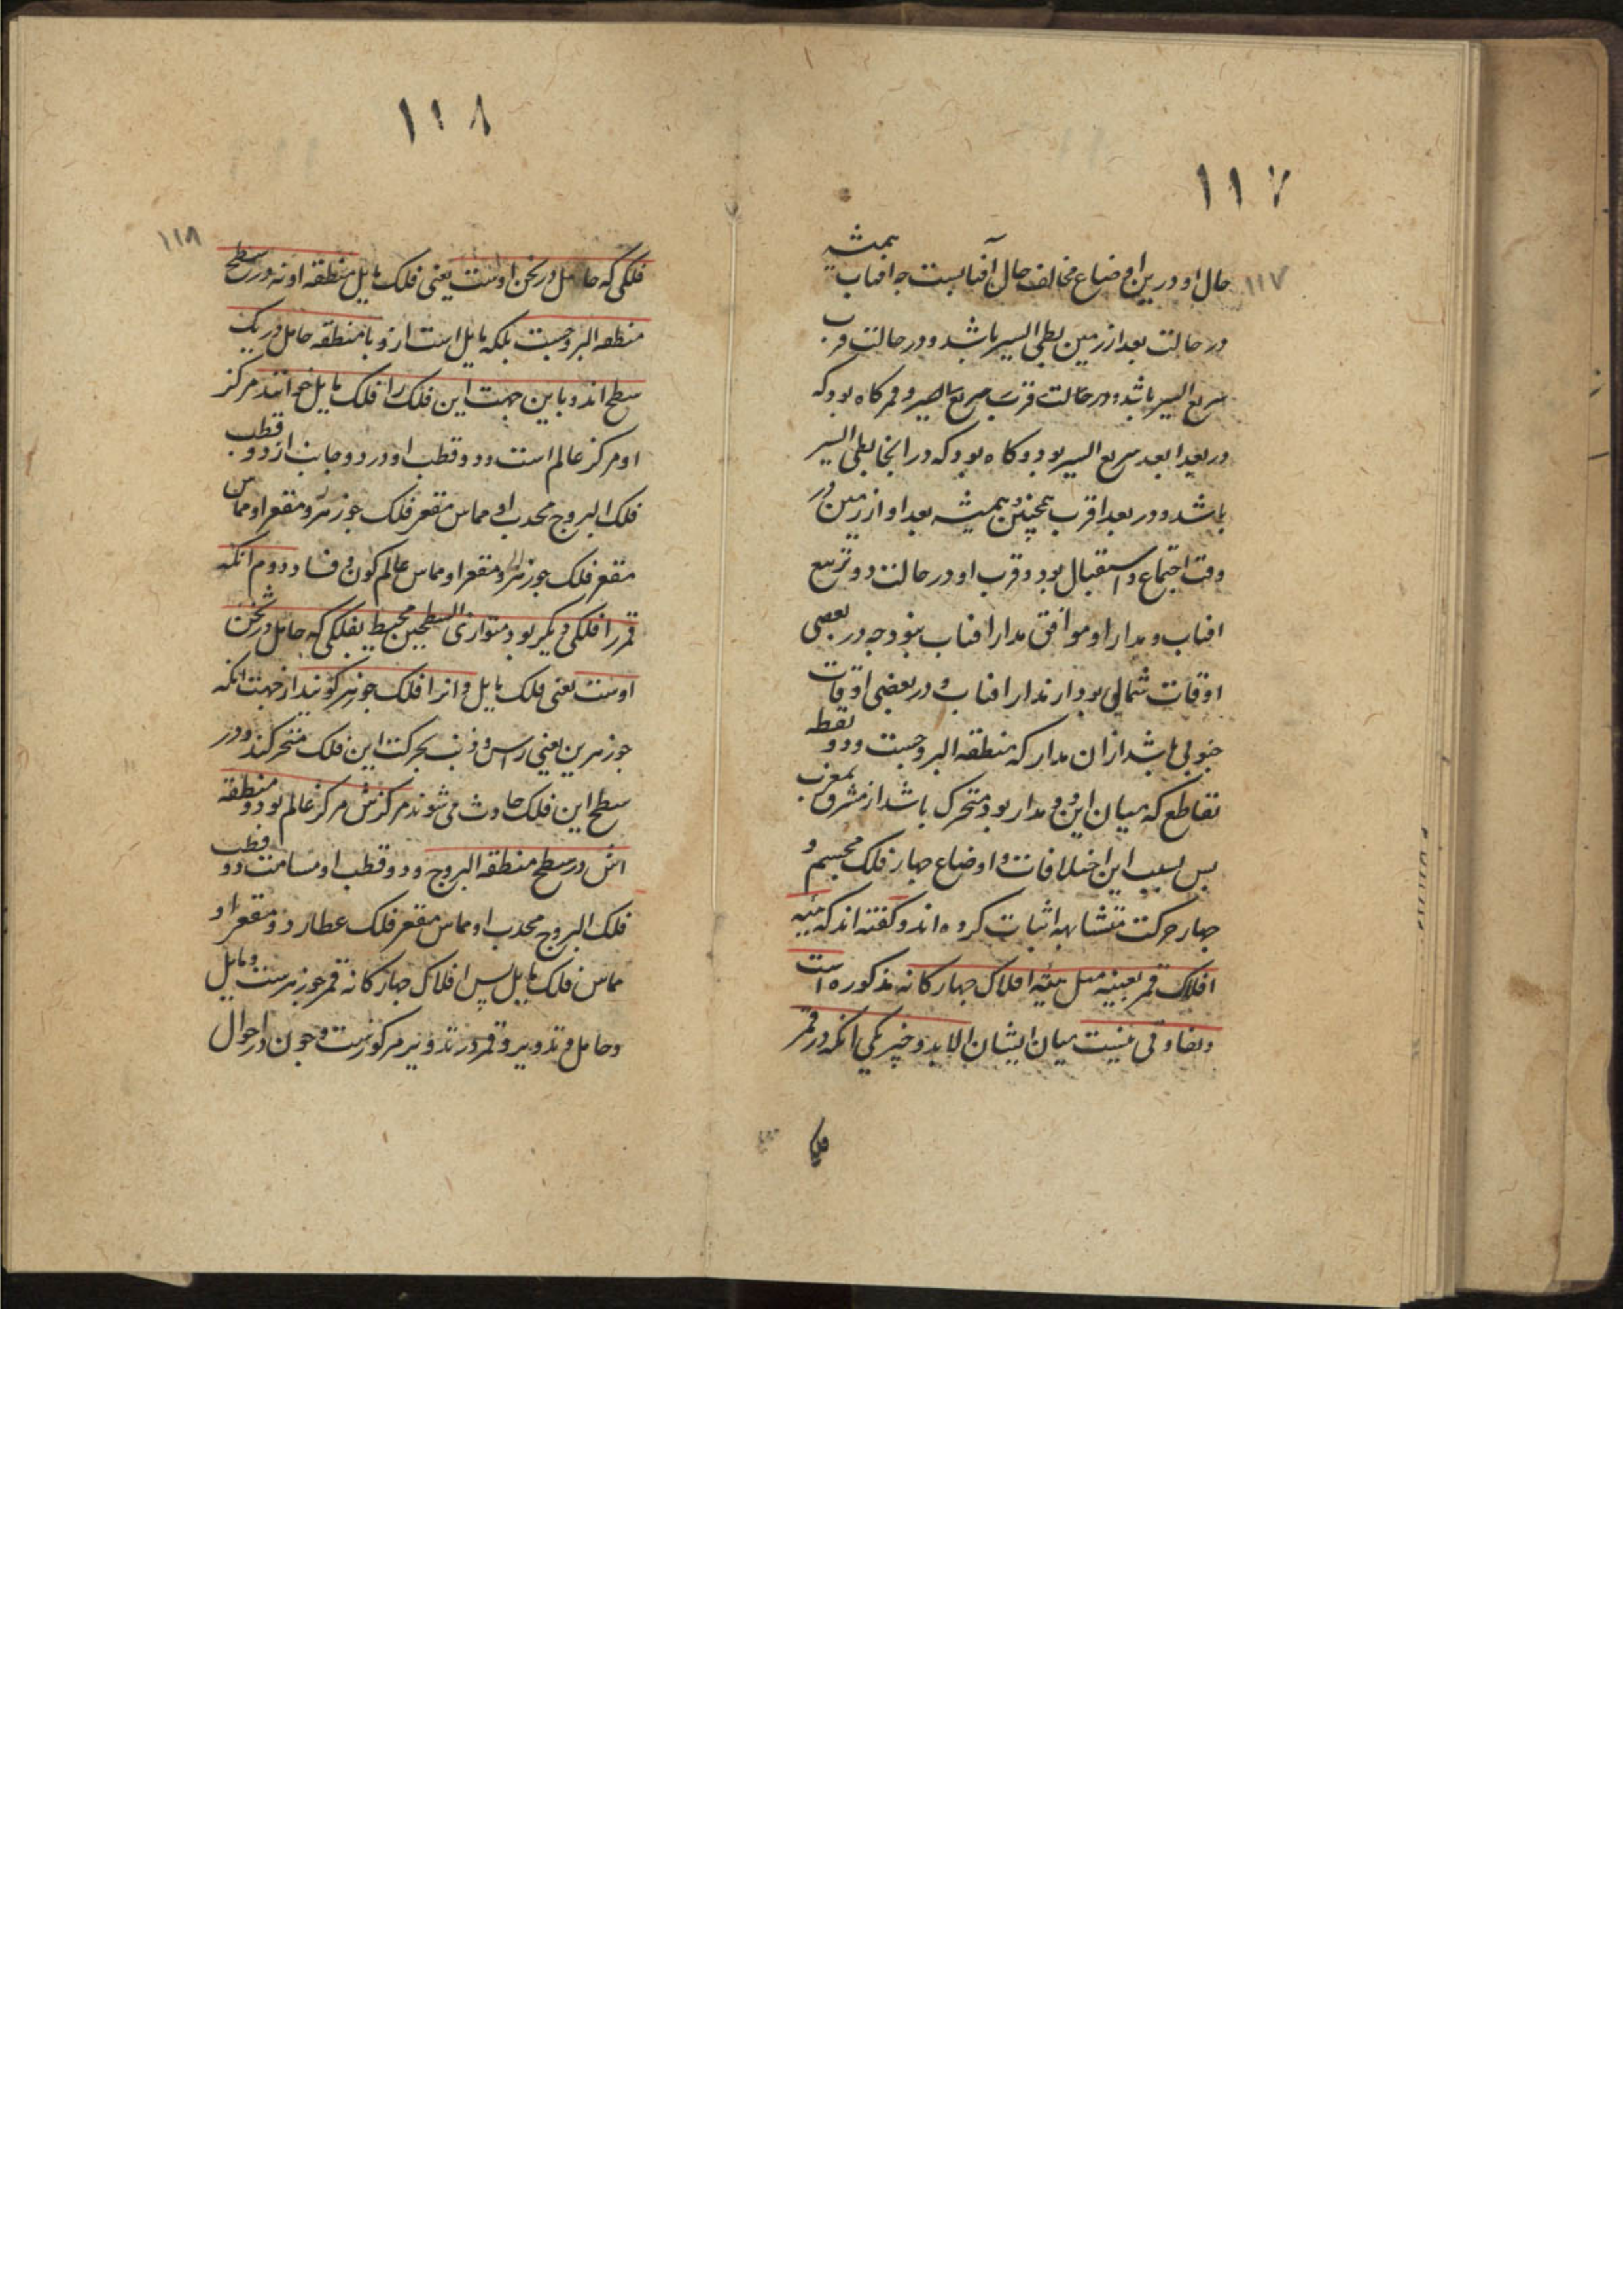 ١١٧
١١٧
حال او درین اوضاع مخالف حال آفتابست جه افتاب همیشه
در حالت بعد از زمین بطی السیر باشد و در حالت قرب
سریع السیر باشد و در حالت قرب سریع السیر و قمر کاه بود که
در بعد ابعد سریع السیر بود و کاه بود که در انجا بطی السیر
باشد و در بعد اقرب همچنین و همیشه بعد او از زمین در
وقت اجتماع و استقبال بود و قرب او در حالت دو تربیع
افتاب و مدار او موافق مدار افتاب نبود جه در بعضی
اوقات شمالی بود از مدار افتاب و در بعضی اوقات
جنوبی باشد ازان مدار که منطقه البروجست و دو نقطه
تقاطع که میان این دو مدار بود متحرک باشد از مشرق بمغرب
بس بسبب این اختلافات و اوضاع جهار فلک مجسم و
جهار حرکت متشابهه اثبات کرده اند و کفته اند که هیئه
افلاک قمر بعینه مثل هیئه افلاک جهارکانه مذکوره است
و تفاوتی نیست میان ایشان الا بدو چیز یکی انکه در قمر
فلکی
١١٨
١١٨
فلکی که حامل در ثخن اوست یعنی فلک مایل منطقه او نه در سطح
منطقه البروجست بلکه مایل است ازو با منطقه حامل در یک
سطح اند و باین جهت این فلک را فلک مایل خوانند مرکز
او مرکز عالم است و دو قطب او در دو جانب از دو قطب
فلک البروج محدب او مماس مقعر فلک جوزهر و مقعر او مماس
مقعر فلک جوزهر و مقعر او مماس عالم کون و فساد دوم انکه
قمر را فلکی دیکر بود متوازی السطحین محیط بفلکی که حامل در ثخن
اوست یعنی فلک مایل و انرا فلک جوزهر کویند از جهت انکه
جوزهرین یعنی راس و ذنب بحرکت این فلک متحرکند و در
سطح این فلک حادث می شوند مرکزش مرکز عالم بود و منطقه
اش در سطح منطقه البروج و دو قطب او مسامت دو قطب
فلک البروج محدب او مماس مقعر فلک عطارد و مقعر او
مماس فلک مایل پس افلاک جهارکانه قمر جوزهرست و مایل
و حامل و تدویر و قمر در تدویر مرکوزست و جون در احوال